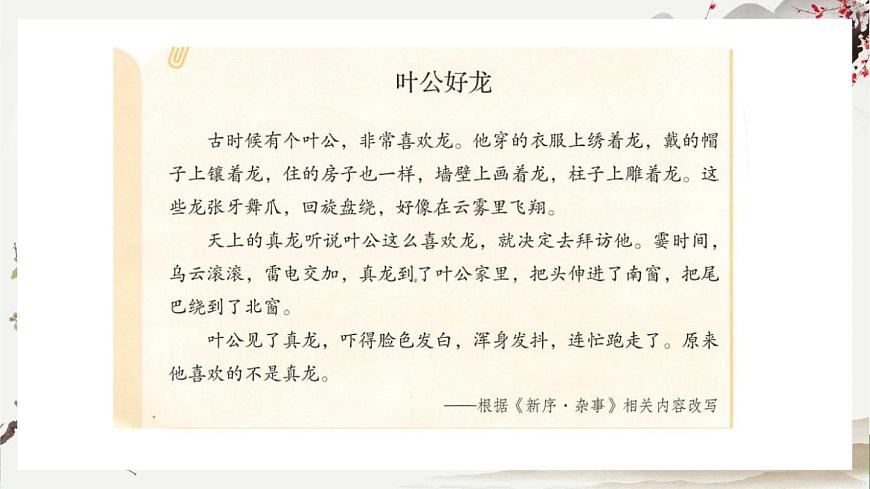 叶公好龙
古时候有个叶公，非常喜欢龙。他穿的衣服上绣着龙，戴的帽
子上镶着龙，住的房子也一样，墙壁上画着龙，柱子上雕着龙。这
些龙张牙舞爪，回旋盘绕，好像在云雾里飞翔。
天上的真龙听说叶公这么喜欢龙，就决定去拜访他。霎时间，
乌云滚滚，雷电交加，真龙到了叶公家里，把头伸进了南窗，把尾
巴绕到了北窗。
叶公见了真龙，吓得脸色发白，浑身发抖，连忙跑走了。原来
他喜欢的不是真龙。
——根据《新序·杂事》相关内容改写